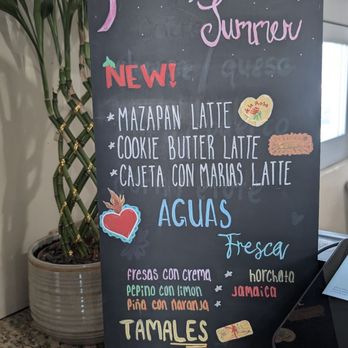 Summer
NEW!
*MAZAPAN LATTE
de la Rosa
*COOKIE BUTTER LATTE
*CAJETA CON MARIAS LATTE
AGUAS
Fresca
fresas con crema * horchata
pepino con limon * jamaica
piña con naranja *
TAMALES